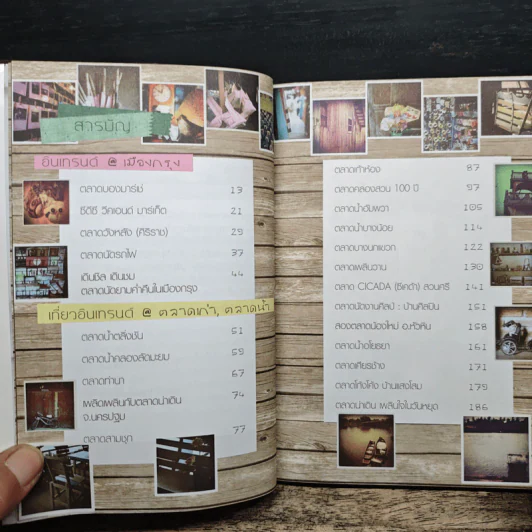 สารบัญ
อินเทรนด์ @ เมืองกรุง
ตลาดบองมาร์เช่ 13
ซีดีซี วีคเอนด์ มาร์เก็ต 21
ตลาดวังหลัง (ศิริราช) 29
ตลาดนัดรถไฟ 37
เดินชิล เดินชม 44
ตลาดนัดยามค่ำคืนในเมืองกรุง
เที่ยวอินเทรนด์ @ ตลาดเก่า, ตลาดน้ำ
ตลาดน้ำตลิ่งชัน 51
ตลาดน้ำคลองลัดมะยม 59
ตลาดท่านา 67
เพลิดเพลินกับตลาดน่าเดิน 74
จ.นครปฐม
ตลาดสามชุก 77
ตลาดเก้าห้อง 87
ตลาดคลองสวน 100 ปี 97
ตลาดน้ำอัมพวา 105
ตลาดน้ำบางน้อย 114
ตลาดบางนกแขวก 122
ตลาดเพลินวาน 130
ตลาด CICADA (ซิเคด้า) สวนศรี 141
ตลาดนัดงานศิลป์ : บ้านศิลปิน 151
ลองตลาดน้องใหม่ อ.หัวหิน 158
ตลาดน้ำอโยธยา 161
ตลาดเพนียงช้าง 171
ตลาดโก้งโค้ง บ้านแสงโสม 179
ตลาดน่าเดิน เพลินใจในวันหยุด 186